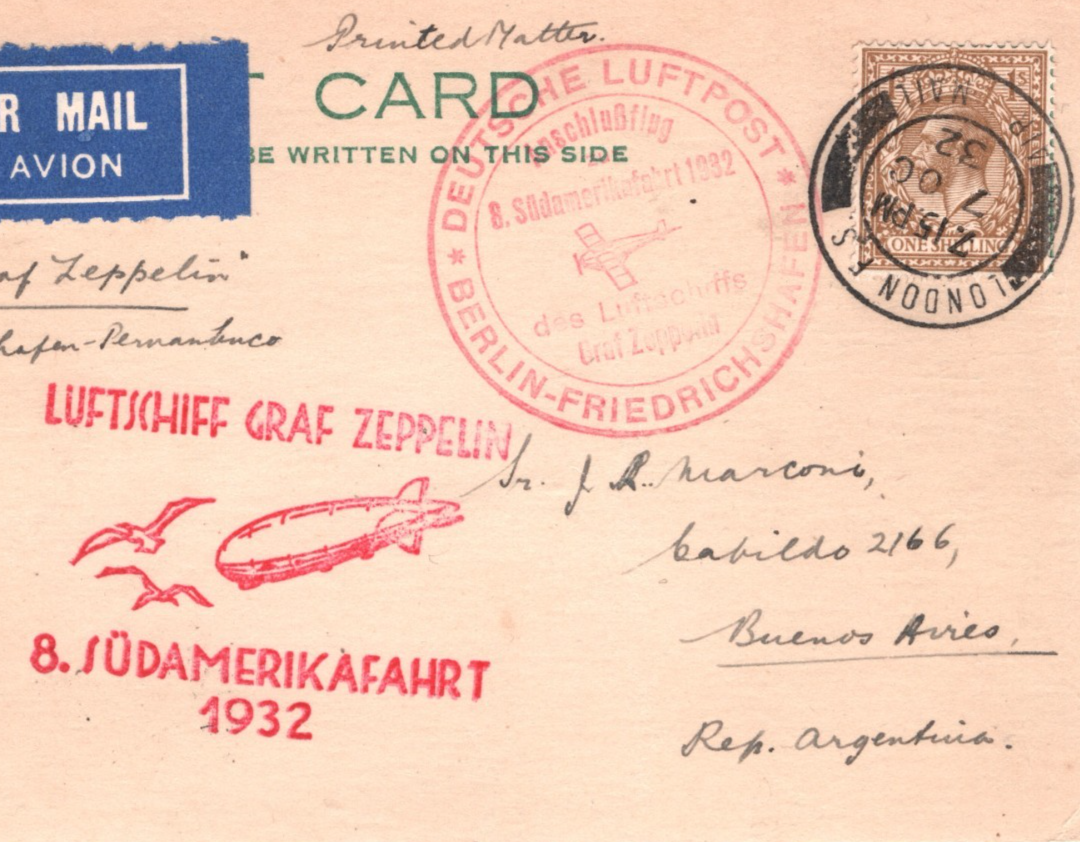 Printed Matter.
R MAIL
AVION
T CARD
BE WRITTEN ON THIS SIDE
DEUTSCHE LUFTPOST
* BERLIN-FRIEDRICHSHAFEN *
Anschlußflug
8. Südamerikafahrt 1932
des Luftschiffs
Graf Zeppelin
ONE SHILLING
LONDON F.S.
AIR MAIL
7.15 PM
7
OC
32
af Zeppelin"
hafen-Pernambuco
LUFTSCHIFF GRAF ZEPPELIN
8. SÜDAMERIKAFAHRT
1932
Sr. J. R. Marconi,
Cabildo 2166,
Buenos Aires,
Rep. Argentina.